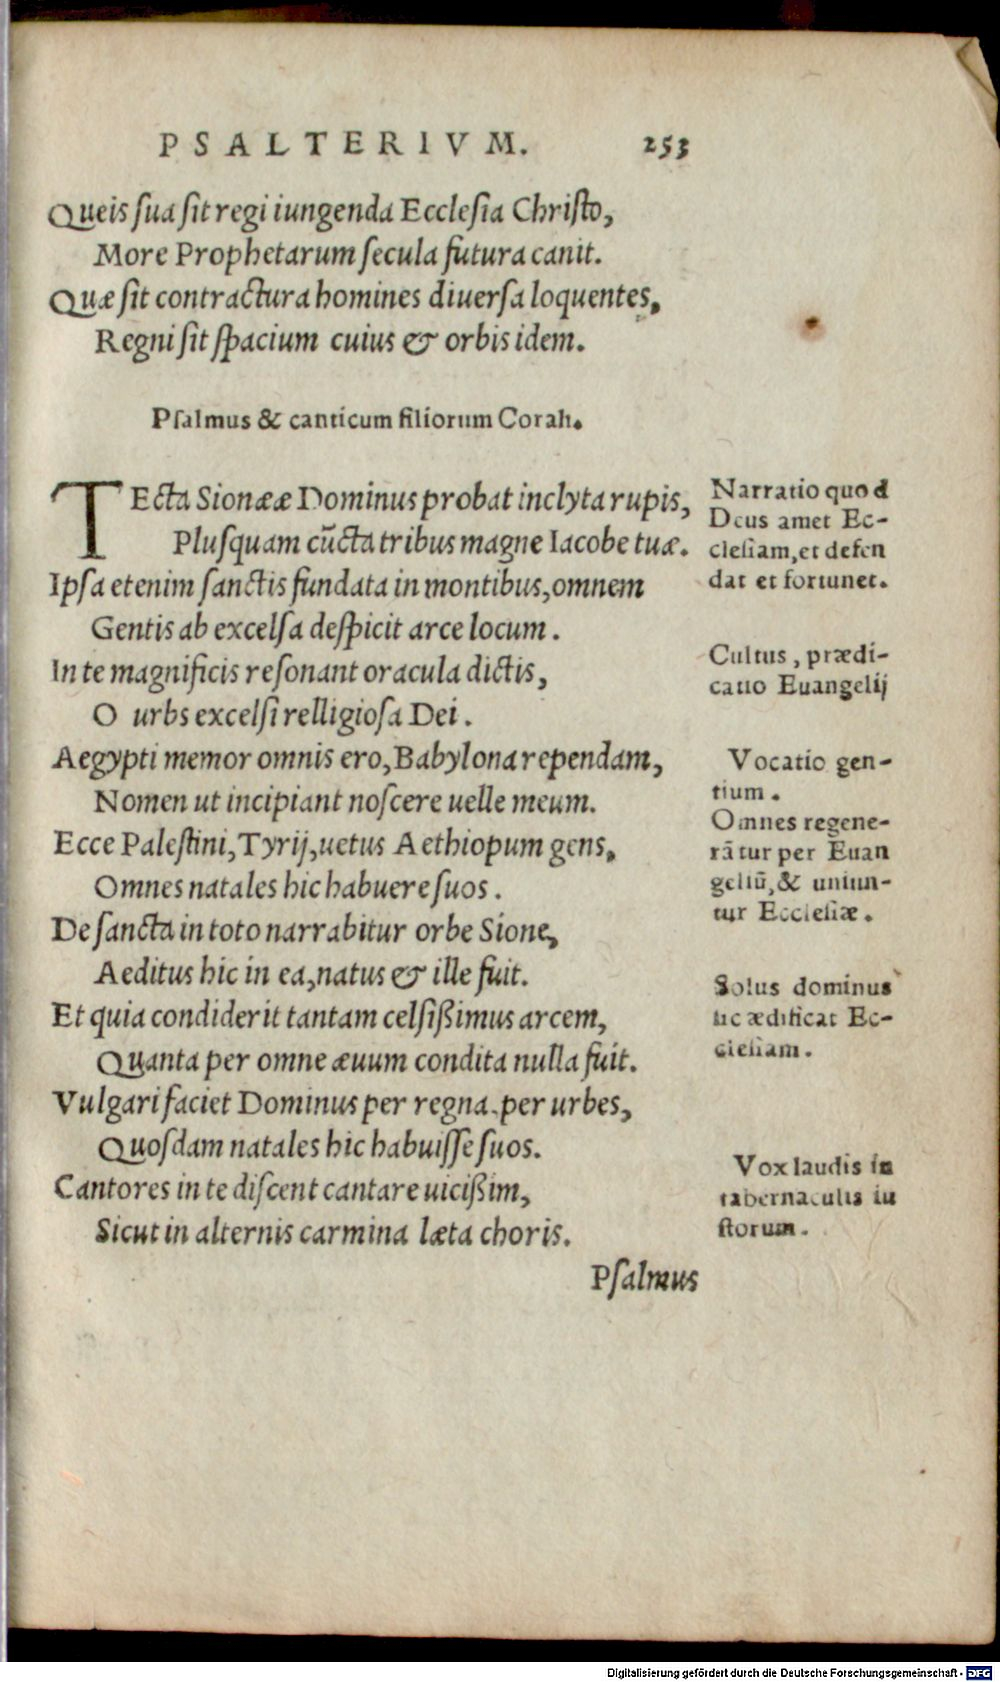 PSALTERIVM. 253
Queis sua sit regi iungenda Ecclesia Christo,
More Prophetarum secula futura canit.
Quæ sit contractura homines diuersa loquentes,
Regni sit spacium cuius & orbis idem.
Psalmus & canticum filiorum Corah.
TEcta Sionææ Dominus probat inclyta rupis,
Plusquam cūcta tribus magne Iacobe tuæ.
Ipsa etenim sanctis fundata in montibus, omnem
Gentis ab excelsa despicit arce locum.
In te magnificis resonant oracula dictis,
O urbs excelsi relligiosa Dei.
Aegypti memor omnis ero, Babylona rependam,
Nomen ut incipiant noscere uelle meum.
Ecce Palestini, Tyrij, uetus Aethiopum gens,
Omnes natales hic habuere suos.
De sancta in toto narrabitur orbe Sione,
Aeditus hic in ea, natus & ille fuit.
Et quia condiderit tantam celsißimus arcem,
Quanta per omne æuum condita nulla fuit.
Vulgari faciet Dominus per regna, per urbes,
Quosdam natales hic habuisse suos.
Cantores in te discent cantare uicißim,
Sicut in alternis carmina læta choris.
Psalmus
Narratio quod
Deus amet Ec-
clesiam, et defen
dat et fortunet.
Cultus, prædi-
catio Euangelij
Vocatio gen-
tium.
Omnes regene-
rātur per Euan
geliū, & uniun-
tur Ecclesiæ.
Solus dominus
sic ædificat Ec-
clesiam.
Vox laudis in
tabernaculis iu
storum.
Digitalisierung gefördert durch die Deutsche Forschungsgemeinschaft - DFG